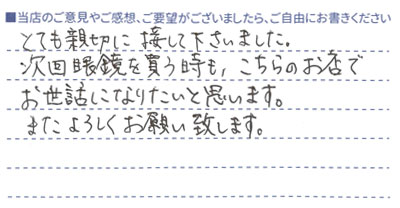 ■当店のご意見やご感想、ご要望がございましたら、ご自由にお書きください
とても親切に接して下さいました。
次回眼鏡を買う時も、こちらのお店で
お世話になりたいと思います。
またよろしくお願い致します。